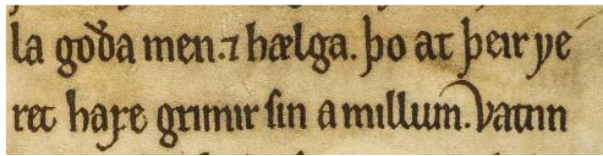 la goða men.⁊ hælga. þo at þeir ve
ret haꝼe grimir ſin a millum. Vatnn